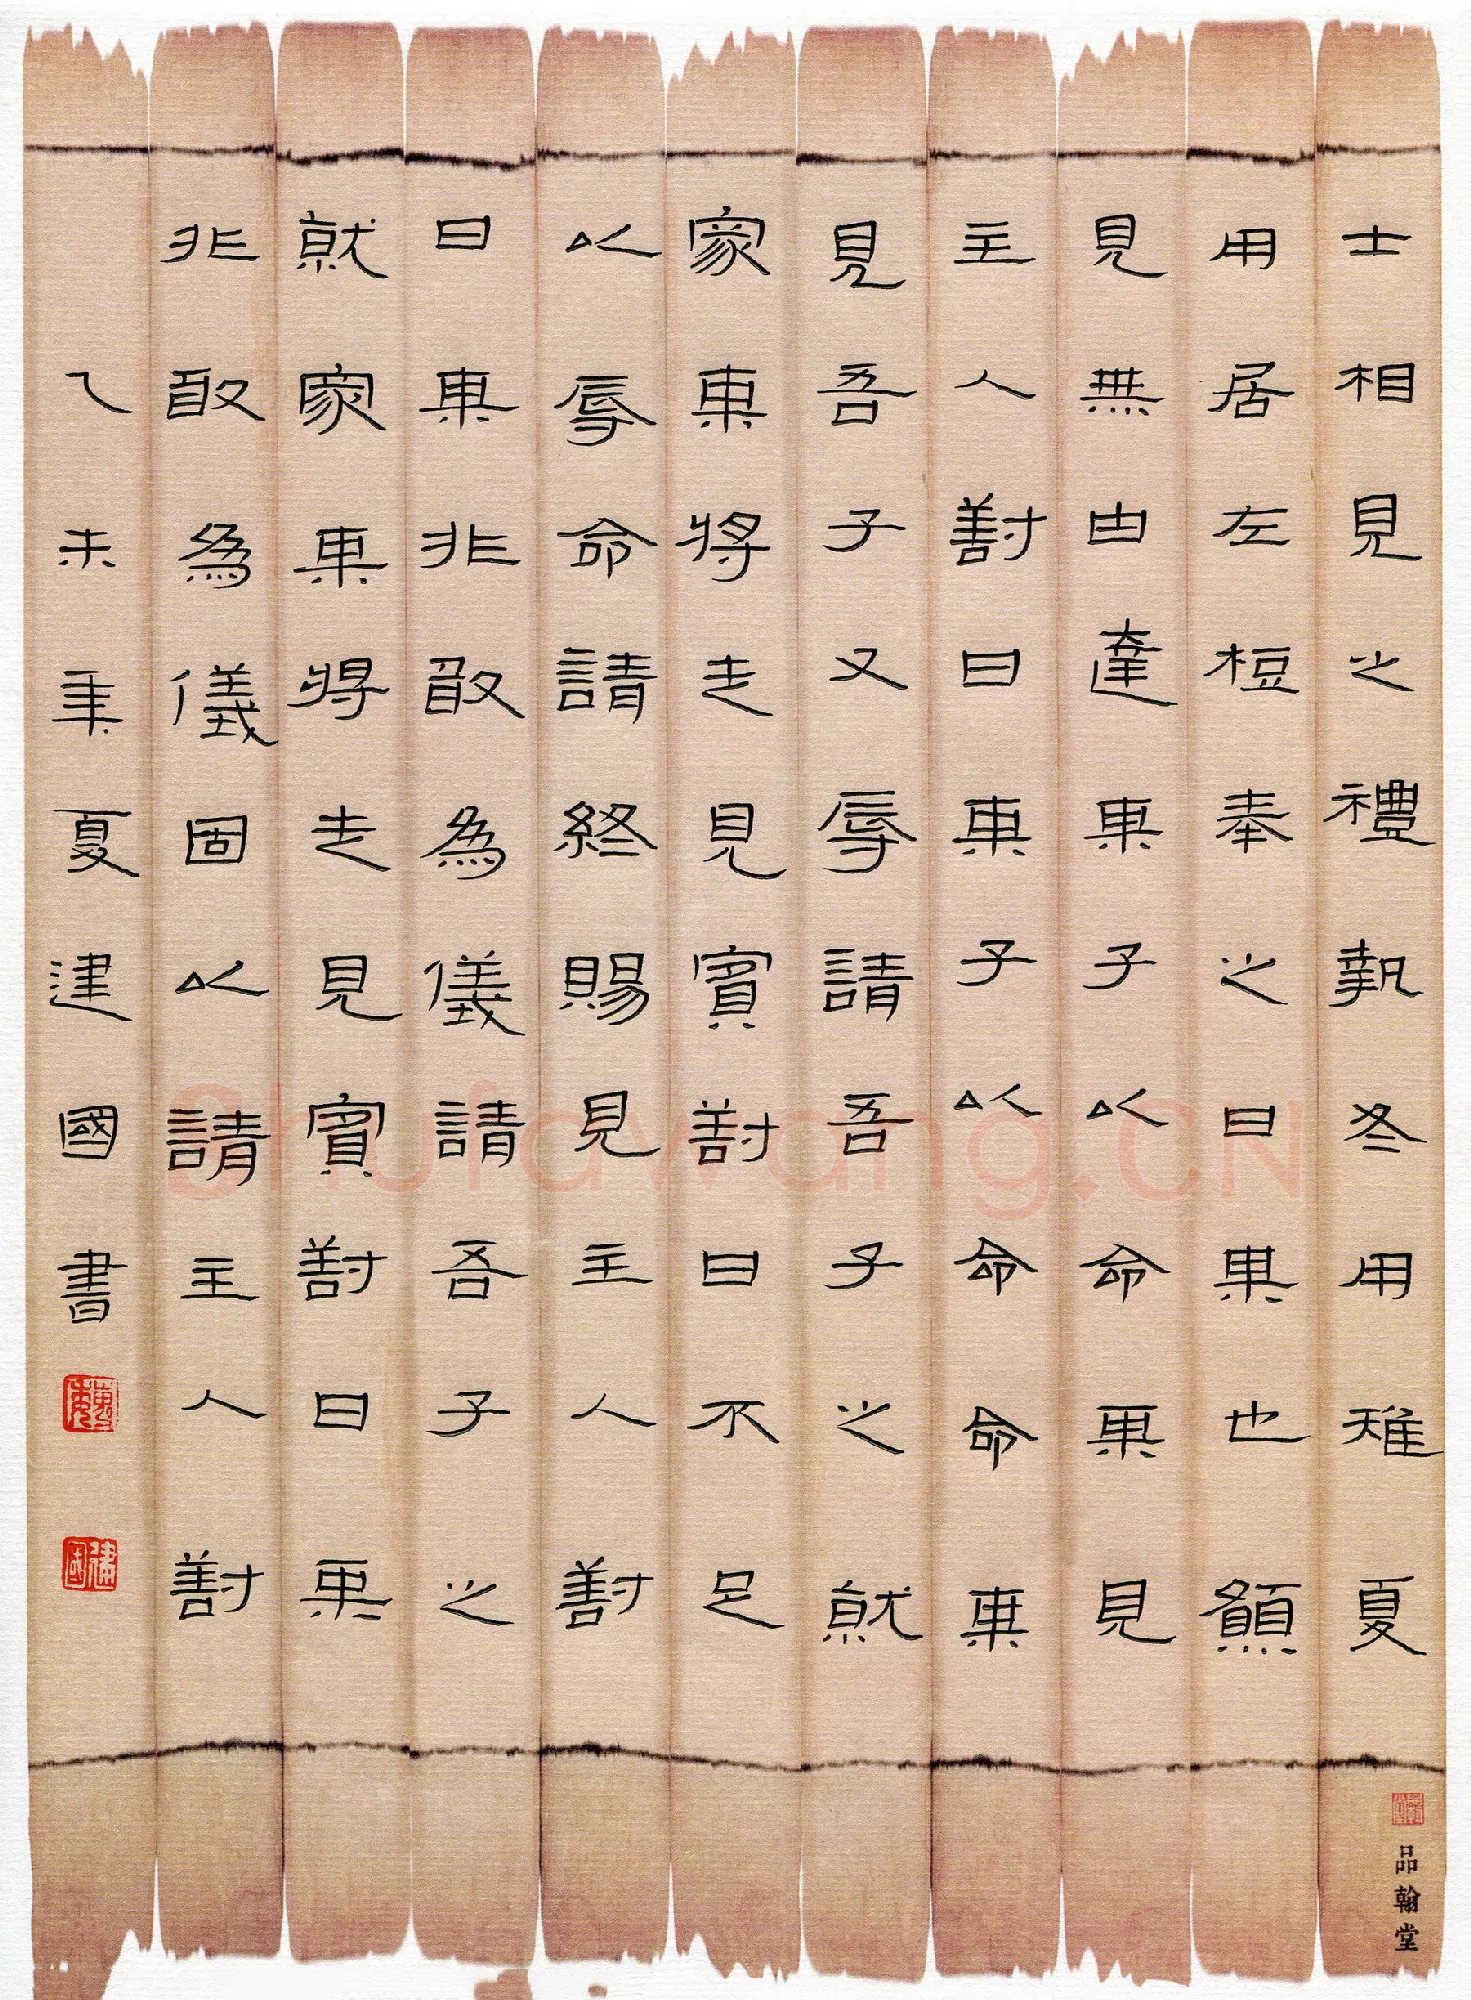 士相見之禮執冬用雉夏
用居左梪奉之曰某也願
見無由達某子以命某見
主人對曰某子以命命某
見吾子又辱請吾子之就
家某將走見賓對曰不足
以辱命請終賜見主人對
曰某非敢為儀請吾子之
就家某將走見賓對曰某
非敢為儀固以請主人對
乙未年夏建國書
建國
品翰堂
Shufawang.CN